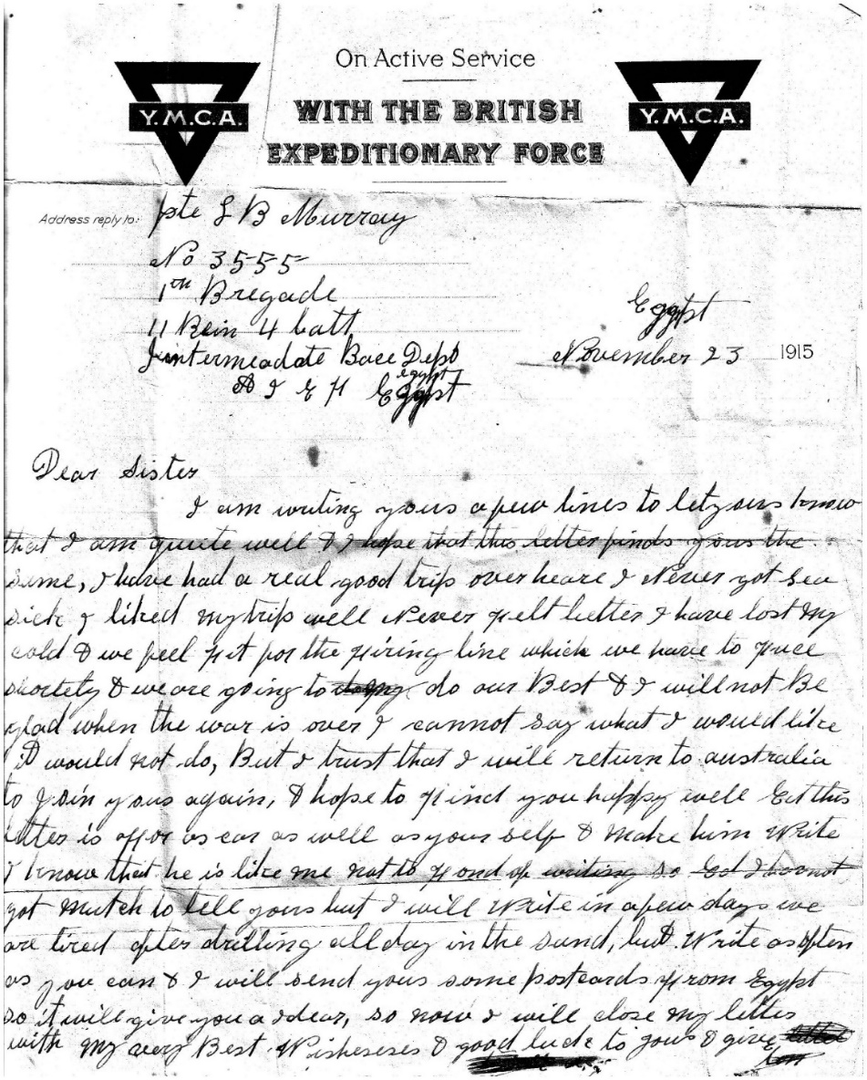 On Active Service
Y.M.C.A. WITH THE BRITISH Y.M.C.A.
EXPEDITIONARY FORCE
Address reply to: pte L B Murray
No 3555
1th Bregade
11 Rein 4 Batt
Intermeadate Bace Depo
egypt
A I E F Egypt
Egypt
November 23 1915
Dear Sister
I am writing yous a few lines to let yous know
that I am quite well & I hope that this letter finds yous the
same, I have had a real good trip over heare I Never got sea
sick I liked My trip well Never felt better I have lost My
cold & we feel fit for the firing line which we have to face
shortely & we are going to do our Best & I will not Be
glad when the war is over I cannot say what I would like
I would not do, But I trust that I will return to australia
to Join yous again, & hope to find you happy well Ed this
letter is for as well as your self & Make him Write
I know that he is like me not to fond of writing so Ed I have not
got Mutch to tell yous but I will Write in a few days we
are tired after drilling all day in the sand, but Write as often
as you can & I will send yous some postcards from Egypt
so it will give you a idear, so now I will close My letter
with My very Best Wisheses & good luck to yous & give